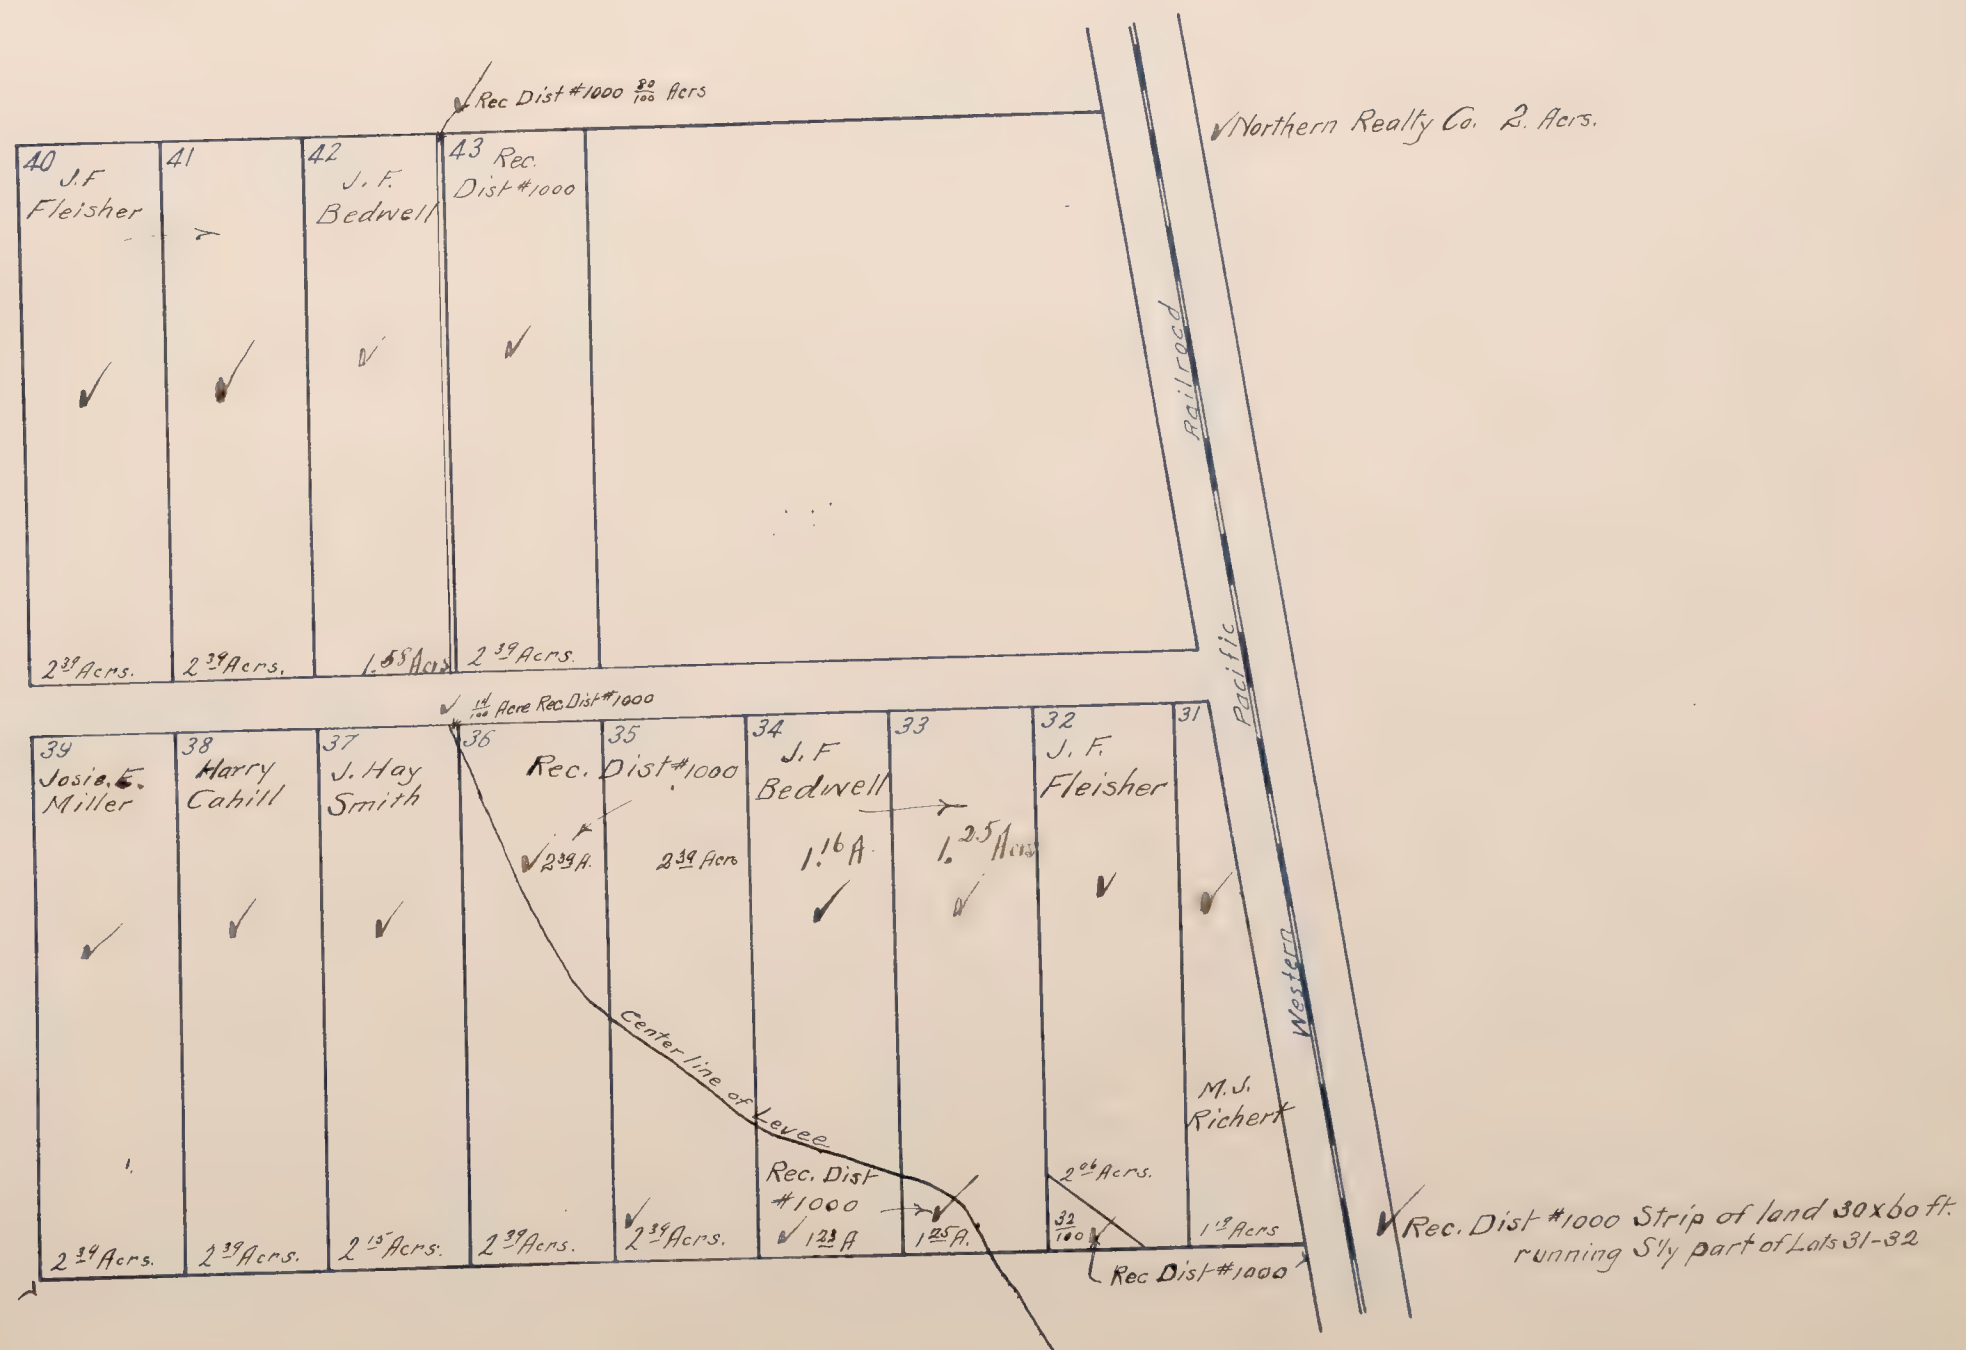 Rec Dist #1000 80/100 Acrs
Northern Realty Co. 2. Acrs.
40
J.F
Fleisher
2 39 Acrs.
41
2 39 Acrs.
42
J. F.
Bedwell
1.58 Acrs
43 Rec.
Dist #1000
2 39 Acrs.
Railroad
Pacific
Western
14/100 Acre Rec Dist #1000
39
Josie. E.
Miller
2 39 Acrs.
38
Harry
Cahill
2 39 Acrs.
37
J. Hay
Smith
2 15 Acrs.
36
35
Rec. Dist #1000
2 39 A.
2 39 Acrs
2 39 Acrs.
2 39 Acrs.
34
J. F
Bedwell
1.16 A.
33
1.25 Acrs
Center line of Levee
Rec. Dist
#1000
1 23 A
1 25 A.
32
J. F.
Fleisher
2 06 Acrs.
32/100
Rec Dist #1000
31
M. J.
Richert
Acrs
Rec. Dist #1000 Strip of land 30x60 ft.
running S'ly part of Lots 31-32